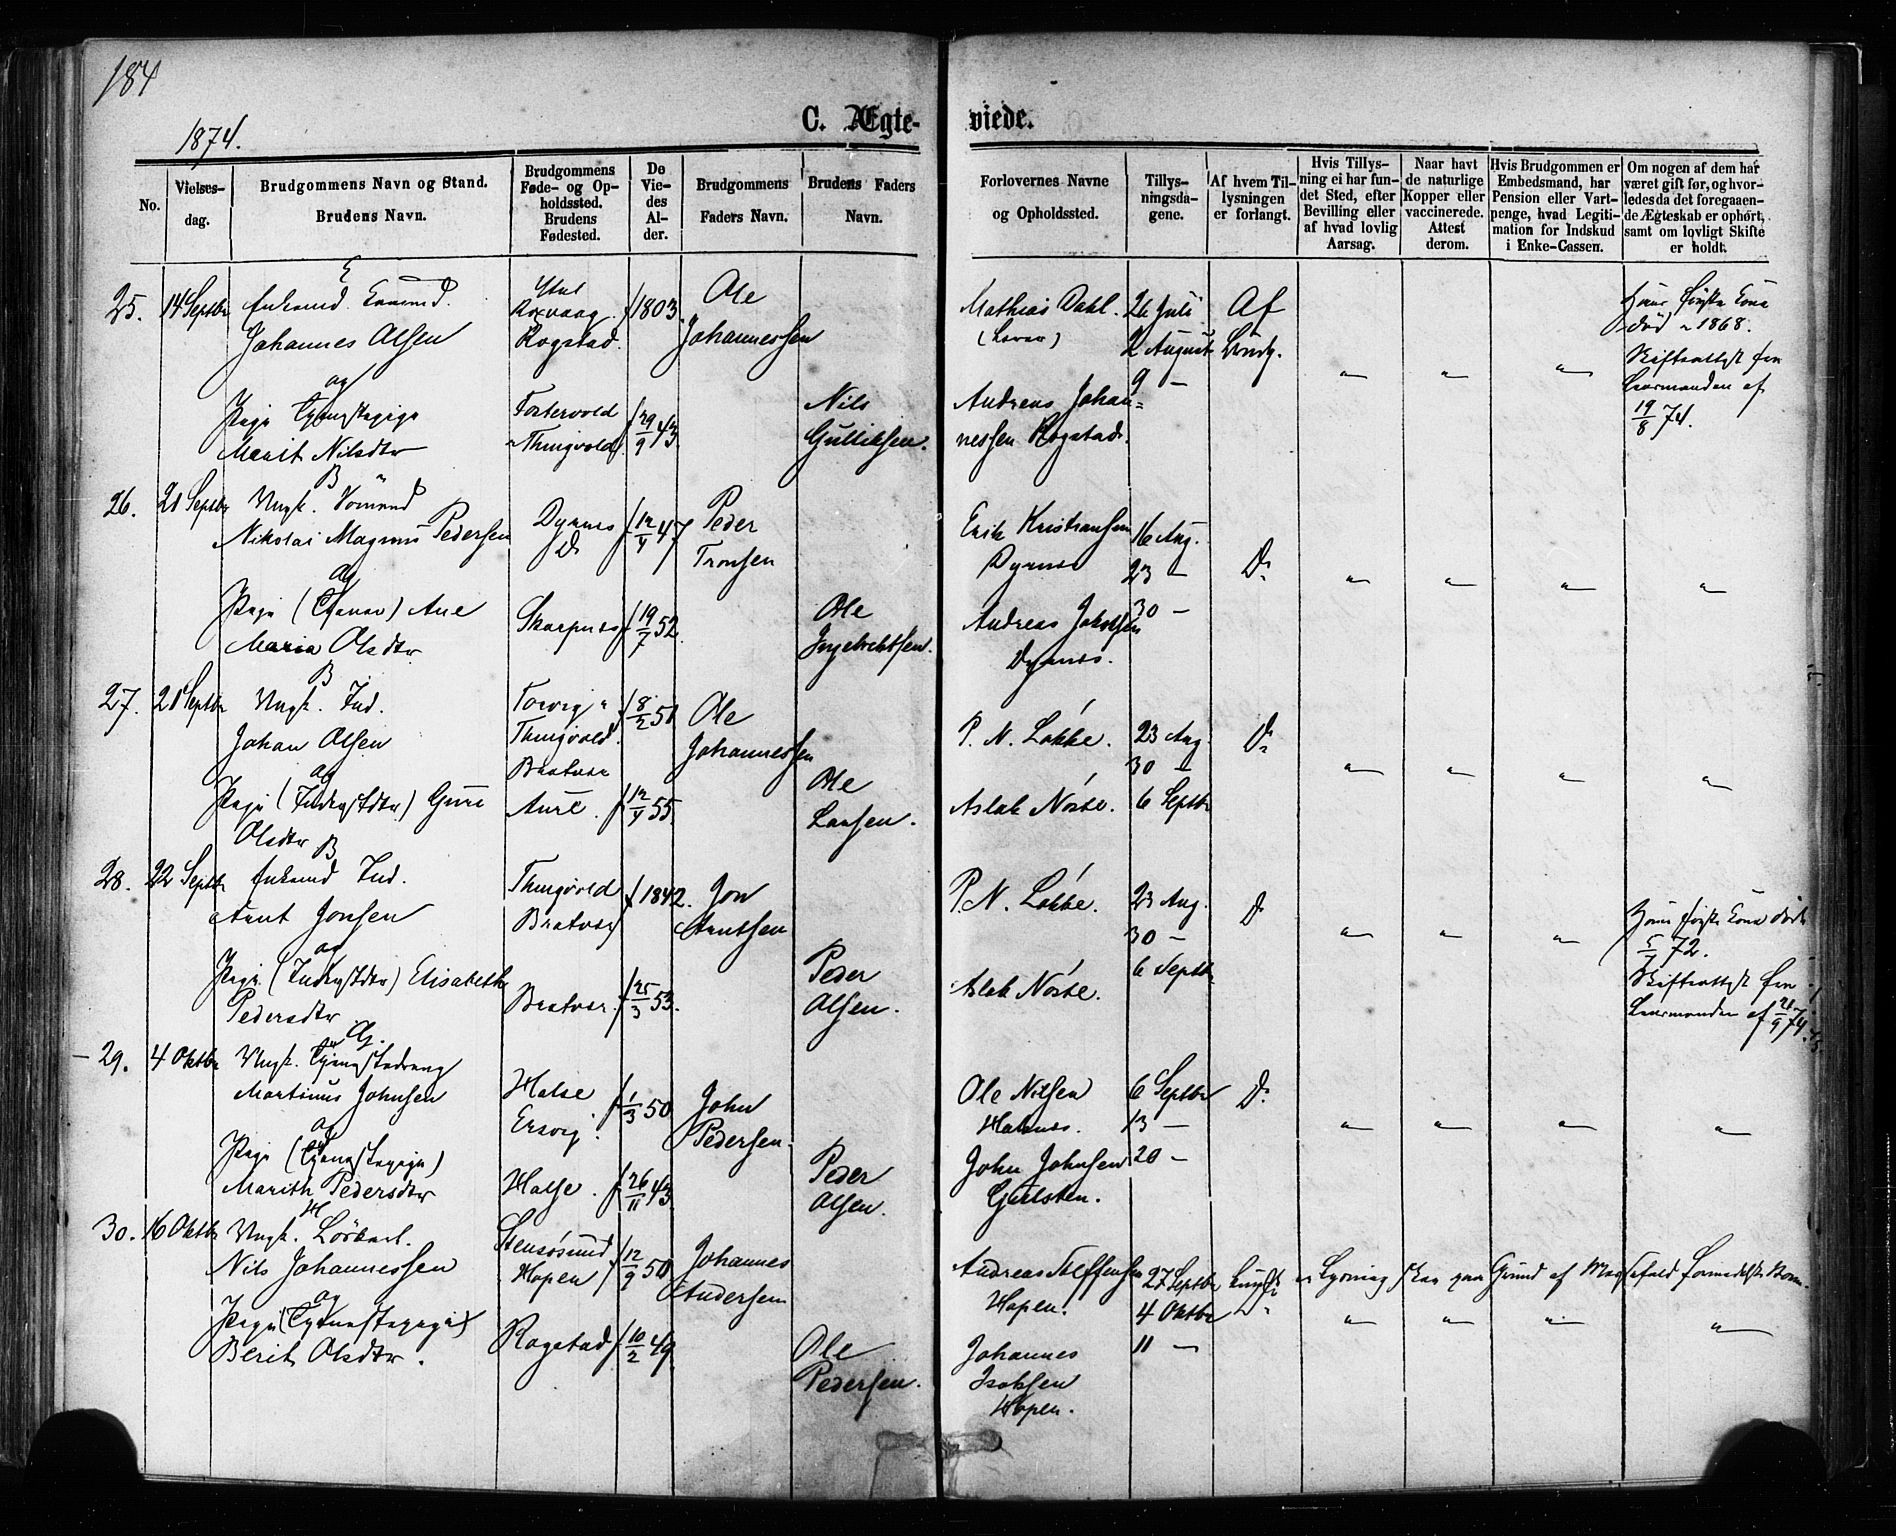 184
1874.
C. Ægteviede.
No.
Vielsesdag.
Brudgommens Navn og Stand.
Brudens Navn.
Brudgommens
Føde- og Opholdssted.
Brudens
Fødested.
De
Viedes
Alder.
Brudgommens
Faders Navn.
Brudens Faders
Navn.
Forlovernes Navne
og Opholdssted.
Tillysningsdagene.
Af hvem Tillysningen
er forlangt.
Hvis Tillysning ei har fundet Sted, efter
Bevilling eller
af hvad lovlig
Aarsag.
Naar havt
de naturlige
Kopper eller
vaccinerede.
Attest
derom.
Hvis Brudgommen er
Embedsmand, har
Pension eller Vartpenge, hvad Legitimation for Indskud
i Enke-Cassen.
Om nogen af dem har
været gift før, og hvorledes da det foregaaende Ægteskab er ophørt,
samt om lovligt Skifte
er holdt.
E
25. 14 Septbr Enkemd.
Johannes Olsen
og
Pige Tjenstepige
Marit Nilsdtr
Roxvaag.
Rogstad.
f 1803.
Fostervold
Thingvold f 29/9 43.
Ole
Johannessen
Nils
Gulliksen.
Mathias Dahl.
Andreas Johannessen Rogstad.
26 Juli
2 August
9 —
Af
Brudg.
" " "
Hans første Kone
død 1868.
Skifteattest fra
Lensmanden af
19/8 74.
B
26. 21 Septbr Ungk.
Nikolai Magnus Pedersen
og
Pige (Tjener) Ane
Maria Olsdtr
Dyrnes
Do
f 12/4 47
Skarpnes f 19/7 52.
Peder
Tronsen
Ole
Ingebrektsen.
Erik Kristiansen
Dyrnes
Andreas Jakobsen
Dyrnes.
16 Aug.
23 —
30 —
Do
" " " "
B
27. 21 Septbr Ungk. Ind.
Johan Olsen
og
Pige (Inderstdtr) Guri
Olsdtr
Torvig
Thingvold.
f 8/2 51
Bratvær
Aure. f 12/4 55.
Ole
Johannessen
Ole
Larsen.
P. N. Løkke.
Aslak Norte.
23 Aug.
30 —
6 Septbr
Do
" " " "
B
28. 22 Septbr Enkemd Ind.
Arnt Jonsen
og
Pige (Inderstdtr) Elisabeth
Pedersdtr
Thingvold
Bratvær
f 1842.
Bratvær. f 25/3 53.
Jon
Arntsen
Peder
Olsen.
P. N. Løkke.
Aslak Norte.
23 Aug.
30 —
6 Septbr
Do
" " "
Hans første Kone døde
72.
Skifteattest fra
Lensmanden af 21/9 74.
G.
29. 4 Oktbr Ungk. Tjenstedreng
Martinus Johnsen
og
Pige (Tjenstepige)
Marith Pedersdtr
Halse
Ersvig.
f 1/3 50
Halse. f 26/11 43.
John
Pedersen.
Peder
Olsen.
Ole Nilsen
Halsnes.
John Johnsen
6 Septbr
13 —
20 —
Do
" " " "
H
30. 16 Oktbr Ungk.
Nils Johannessen
og
Pige (Tjenstepige)
Berit Olsdtr.
Stensøsund
Hopen
f 12/9 50
Rogstad f 10/2 49.
Johannes
Andersen
Ole
Pedersen.
Andreas Steffensen
Hopen.
Johannes
Isaksen
Hopen.
27 Septbr
4 Oktbr
11 —
Do
Lysning paa Grund af
" " " "